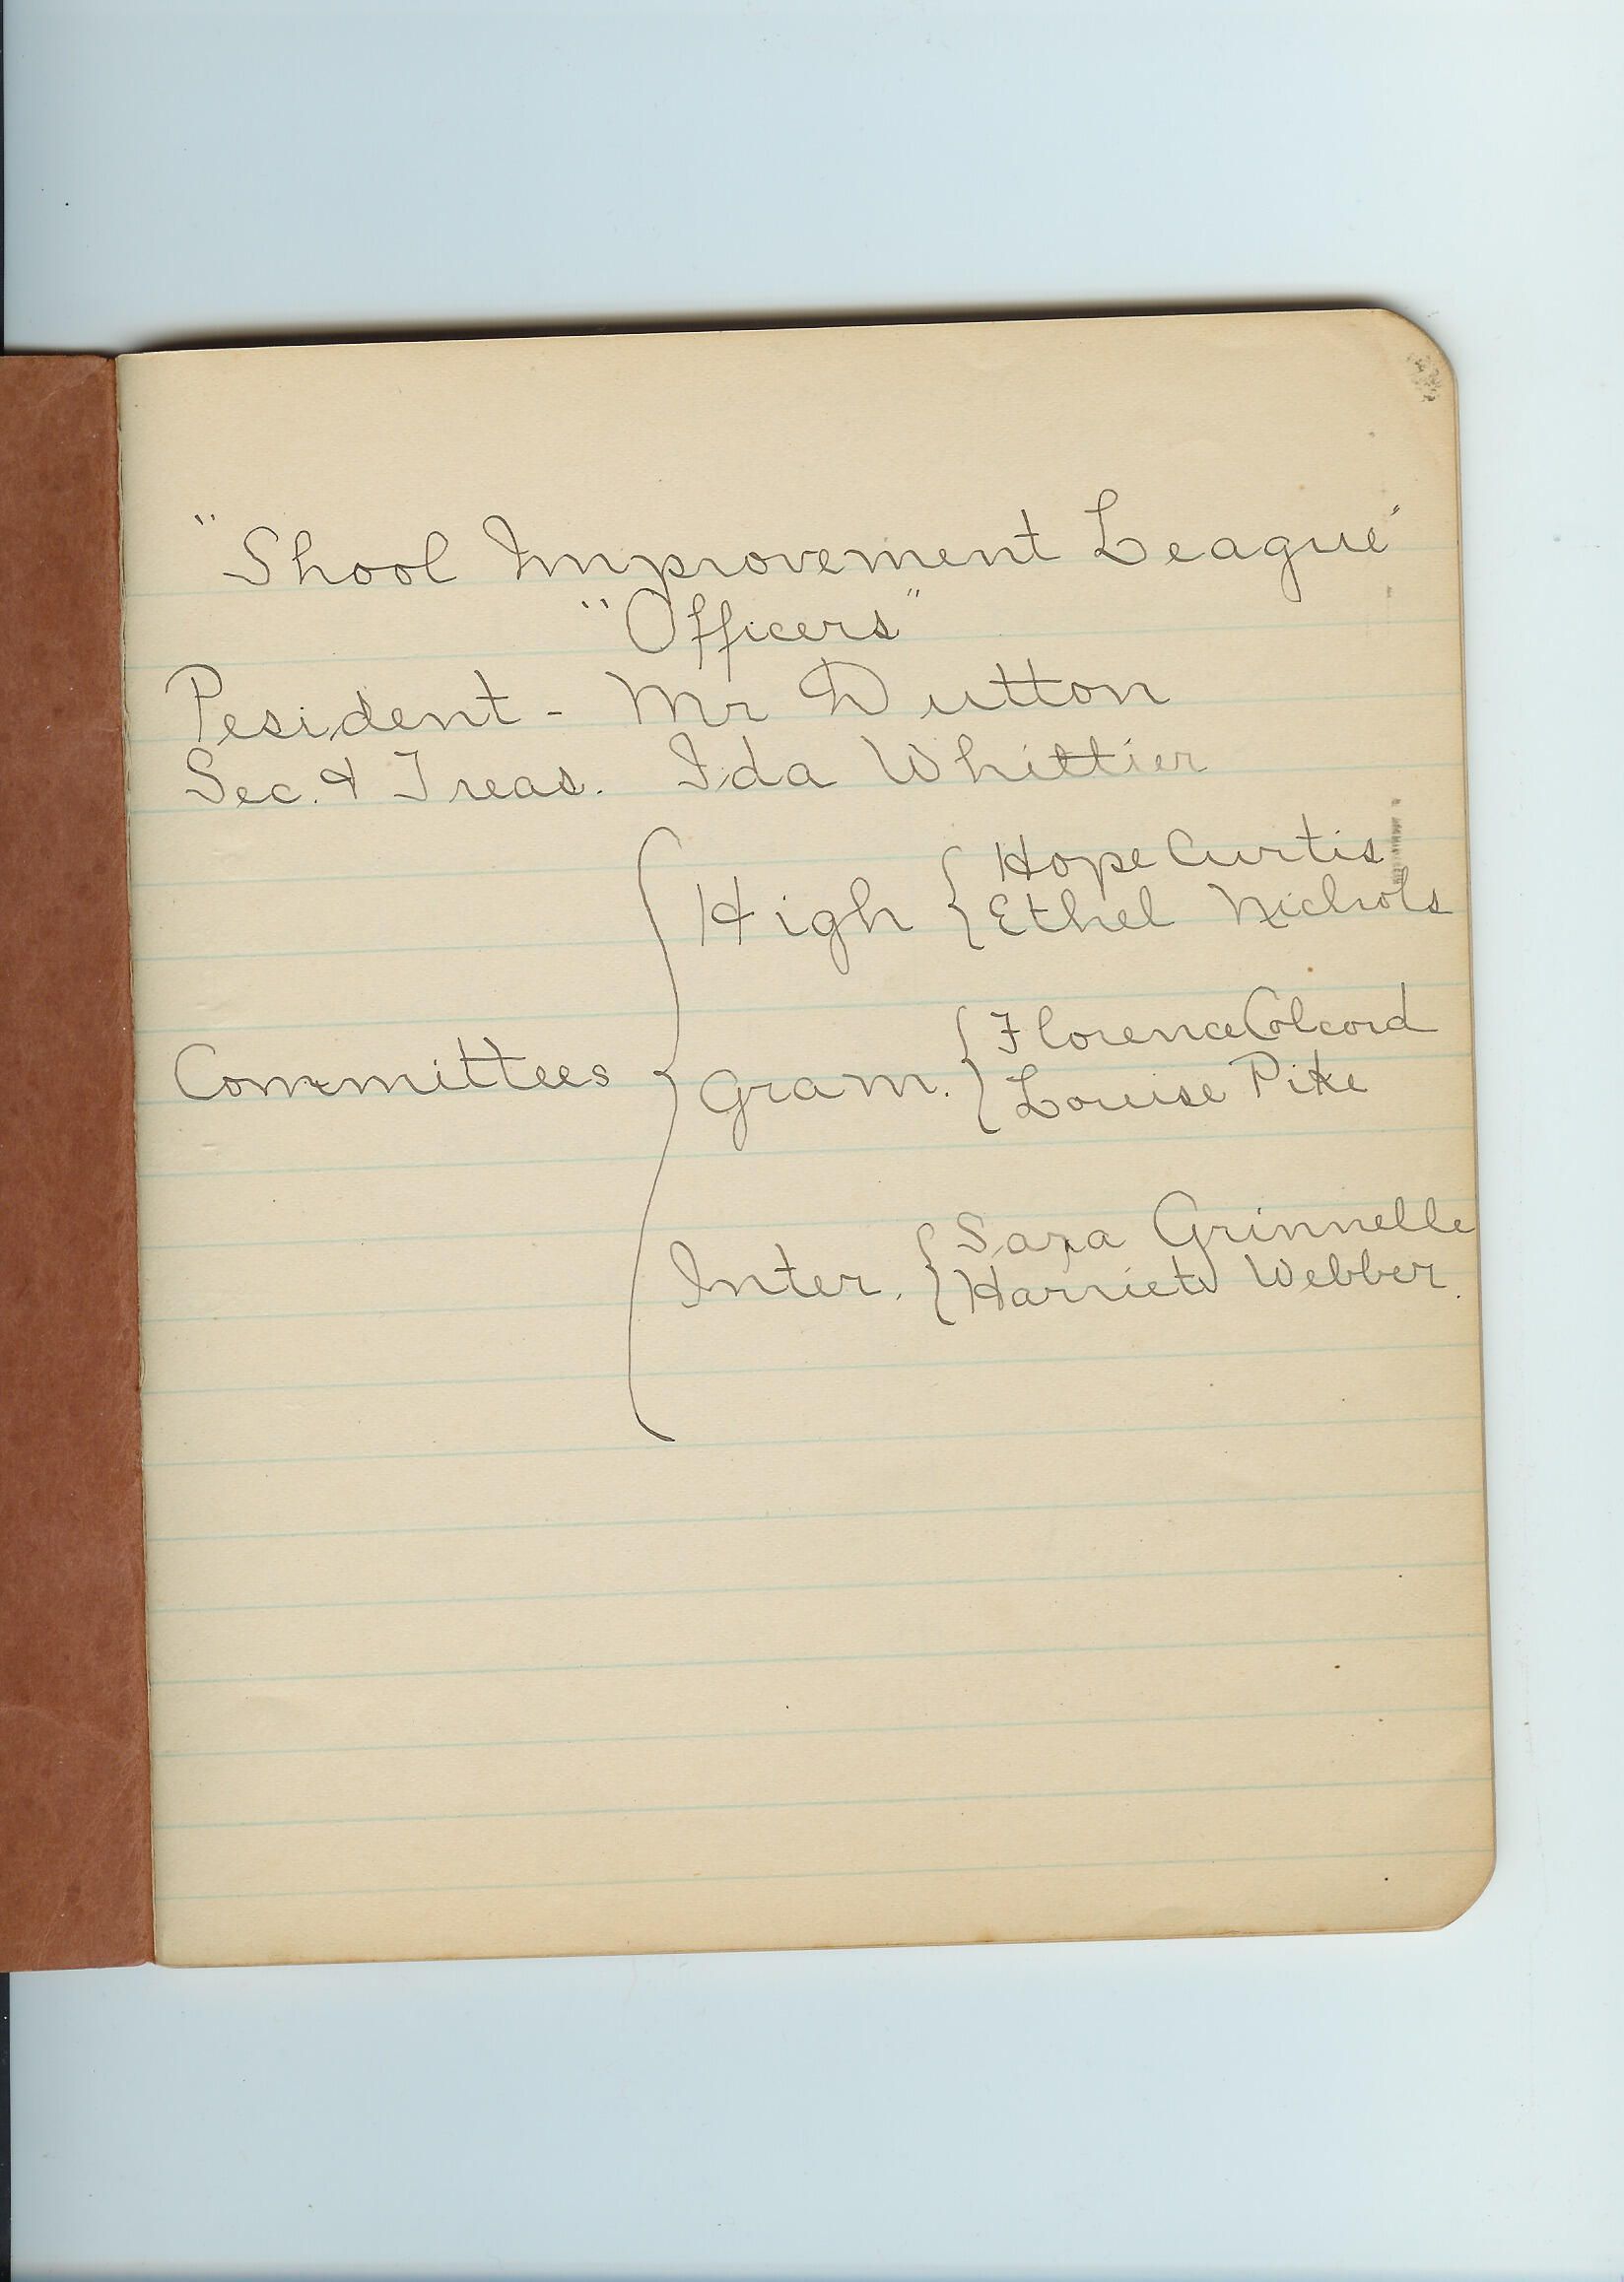 "Shool Improvement League"
"Officers"
Pesident - Mr Dutton
Sec. & Treas. Ida Whittier
Committees
High
Hope Curtis
Ethel Nichols
Gram.
Florence Colcord
Louise Pike
Inter.
Sara Grinnelle
Harriet Webber.